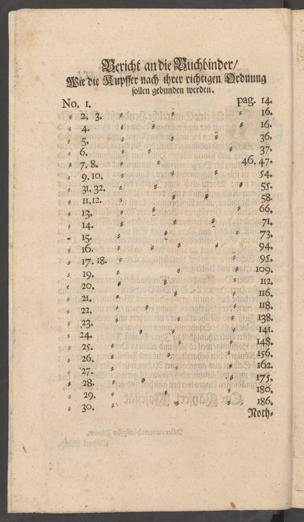 Bericht an die Buchbinder/
Wie die Kupffer nach ihrer richtigen Ordnung
sollen gebunden werden.
No. 1. pag. 14.
2, 3. 16.
4. 16.
5. 36.
6. 37.
7. 8. 46. 47.
9. 10. 54.
31. 32. 55.
11. 12. 58.
13. 66.
14. 71.
15. 73.
16. 94.
17. 18. 95.
19. 109.
20. 112.
21. 116.
22. 118.
23. 138.
24. 141.
25. 148.
26. 156.
27. 162.
28. 175.
29. 180.
30. 186.
Noth-